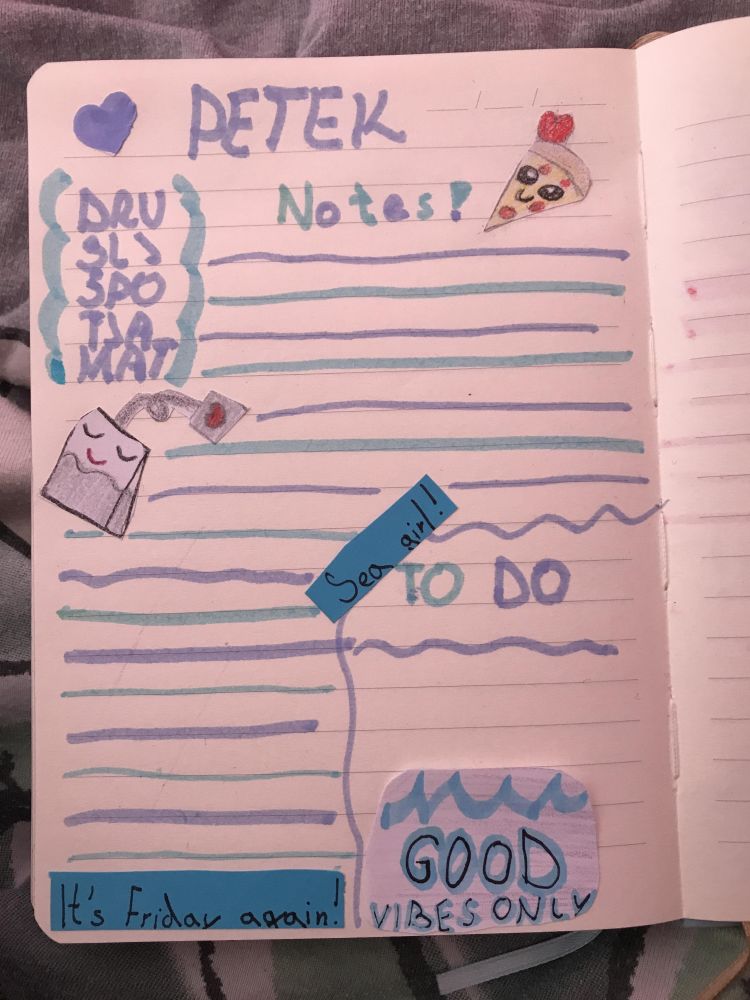 PETEK
DRU
SLJ
SPO
TJA
MAT
Notes!
Sea girl!
TO DO
It's Friday again!
GOOD
VIBES ONLY